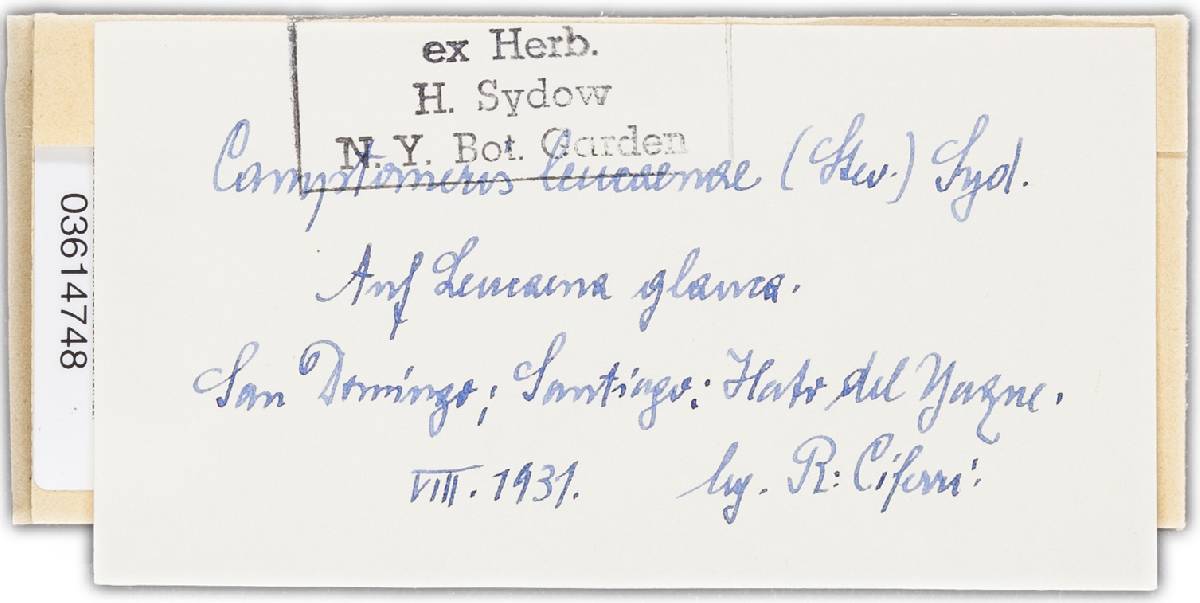 ex Herb.
H. Sydow
N. Y. Bot. Garden
Camptomeris leucaenae (Stev.) Syd.
Auf Leucaena glauca.
San Domingo; Santiago: Hato del Yaque.
VIII. 1931. leg. R. Ciferri.
03614748